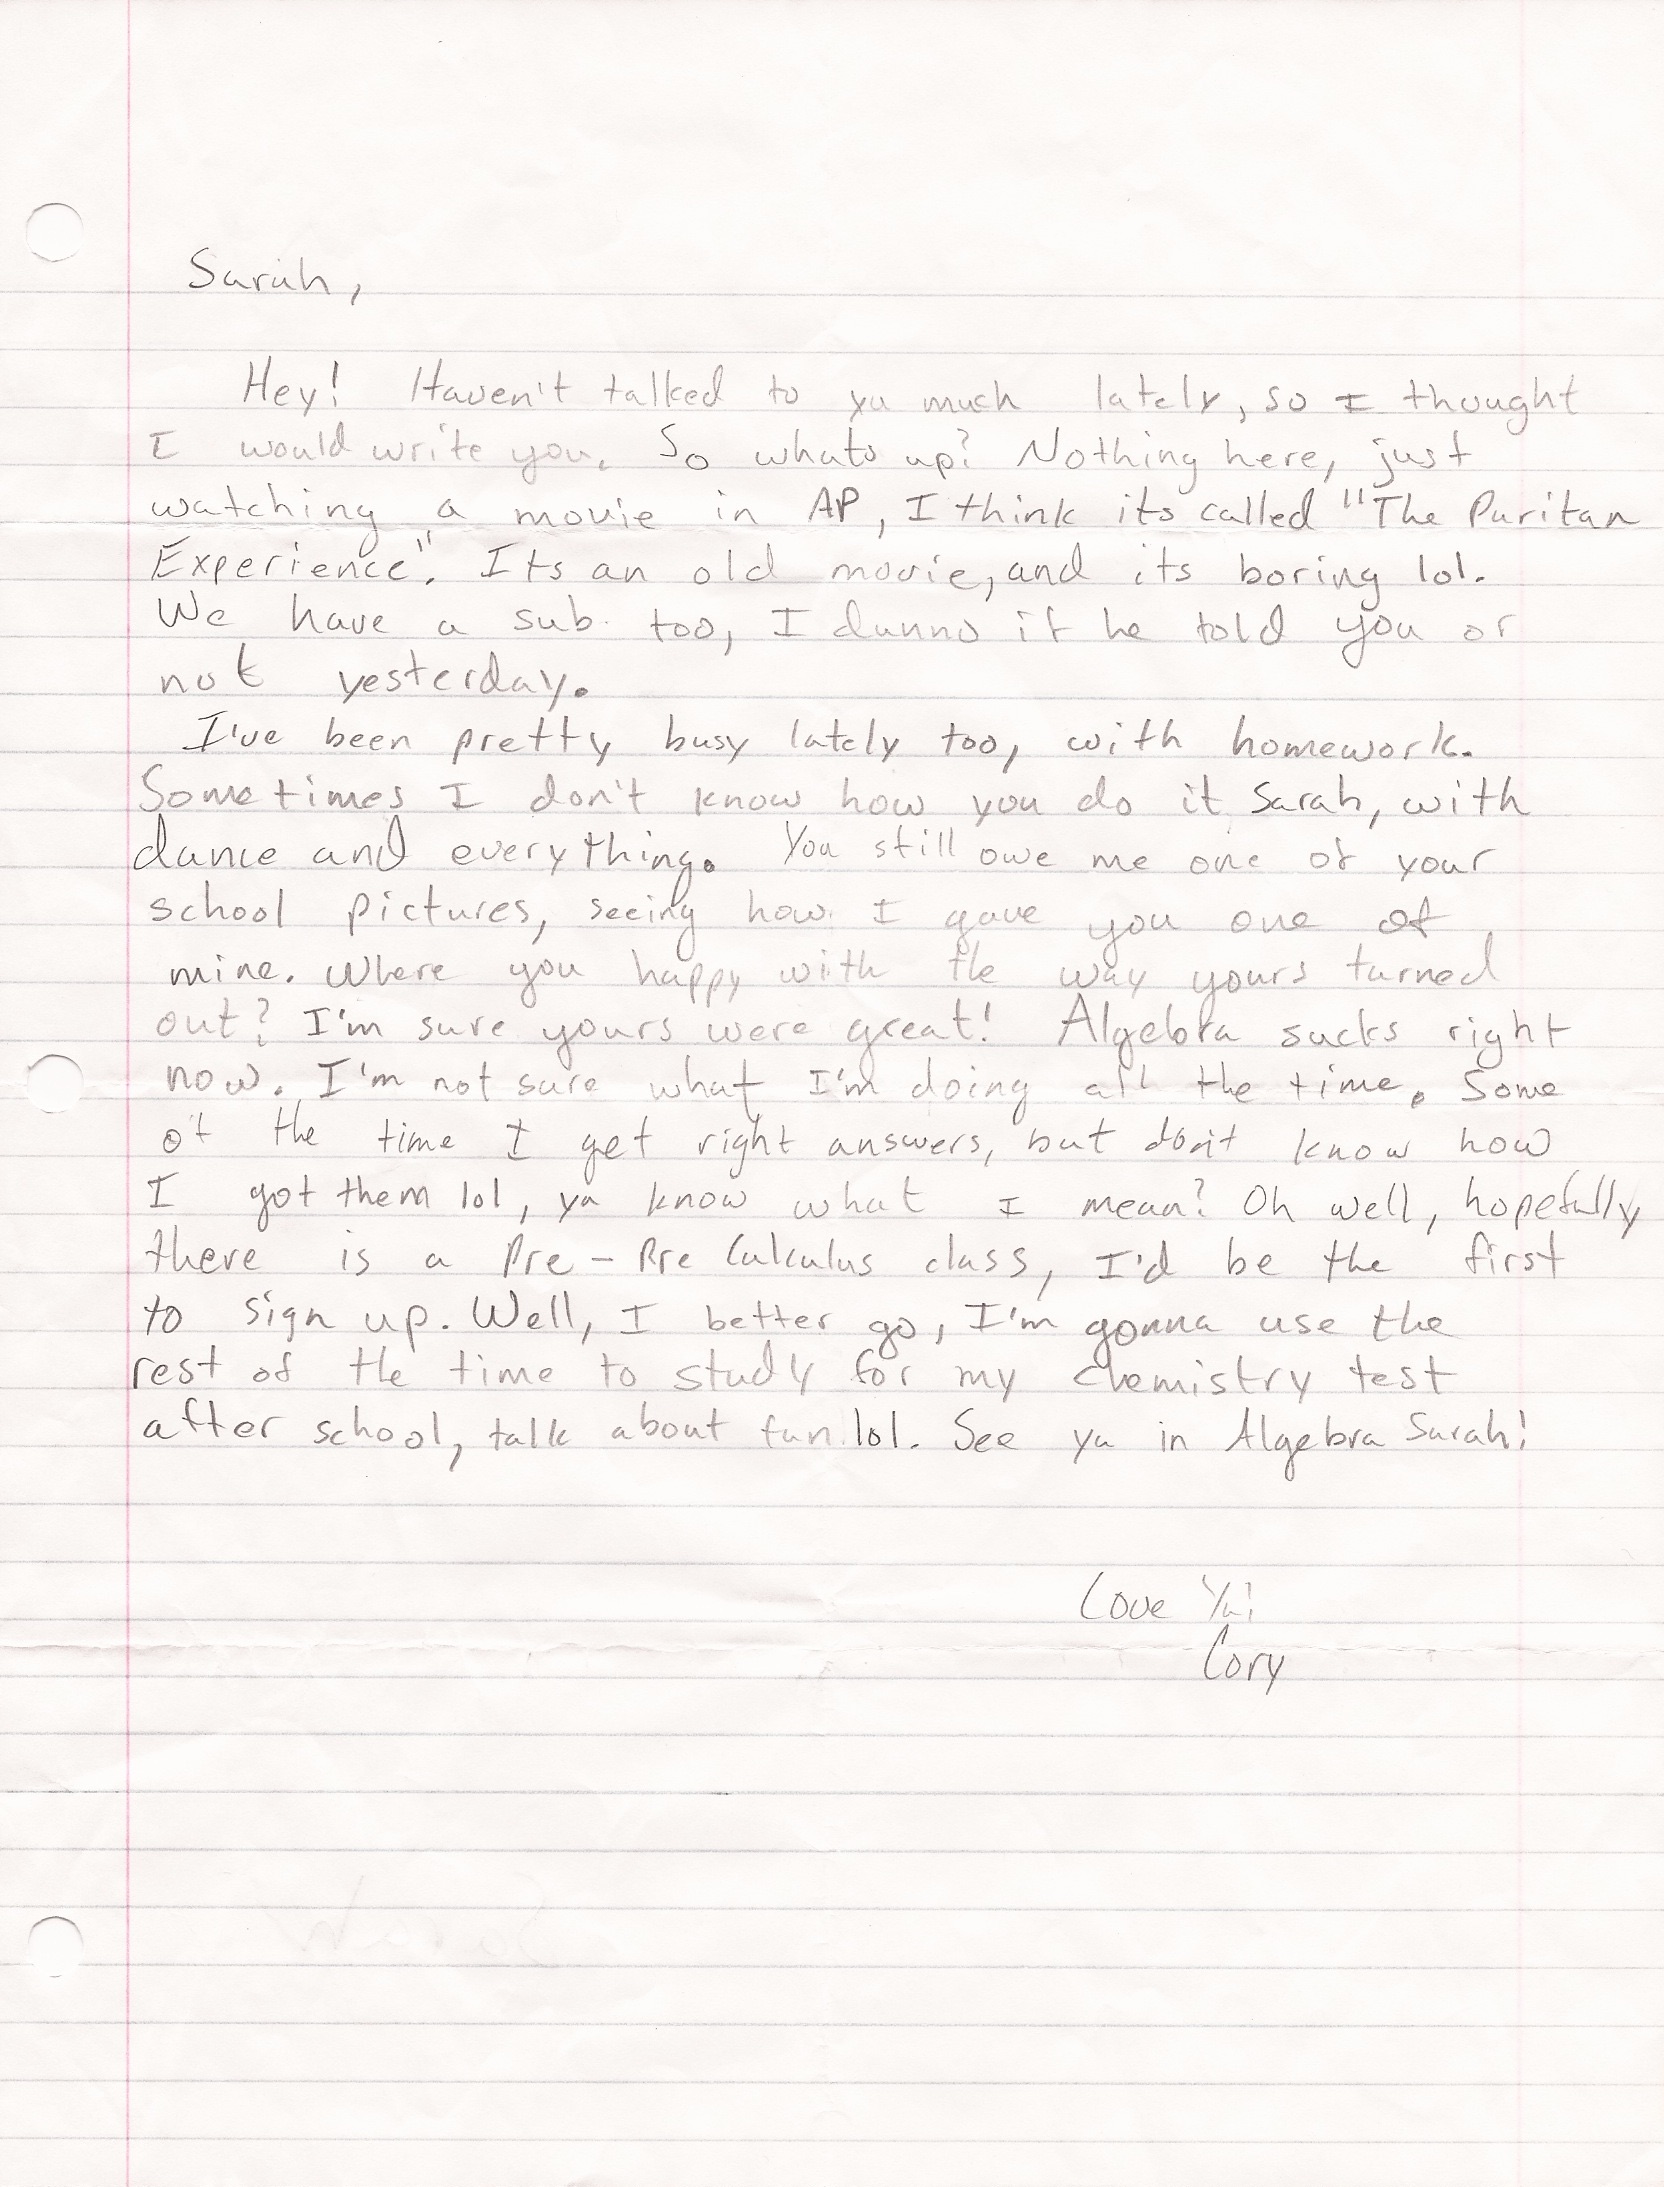 Sarah,
Hey! Haven't talked to ya much lately, so I thought
I would write you. So whats up? Nothing here, just
watching a movie in AP, I think its called "The Puritan
Experience". Its an old movie, and its boring lol.
We have a sub. too, I dunno if he told you or
not yesterday.
I've been pretty busy lately too, with homework.
Sometimes I don't know how you do it Sarah, with
dance and everything. You still owe me one of your
school pictures, seeing how I gave you one of
mine. Where you happy with the way yours turned
out? I'm sure yours were great! Algebra sucks right
now. I'm not sure what I'm doing all the time. Some
of the time I get right answers, but don't know how
I got them lol, ya know what I mean? Oh well, hopefully
there is a Pre-Pre Calculus class, I'd be the first
to sign up. Well, I better go, I'm gonna use the
rest of the time to study for my chemistry test
after school, talk about fun lol. See ya in Algebra Sarah!
Love Ya!
Cory
Sarah